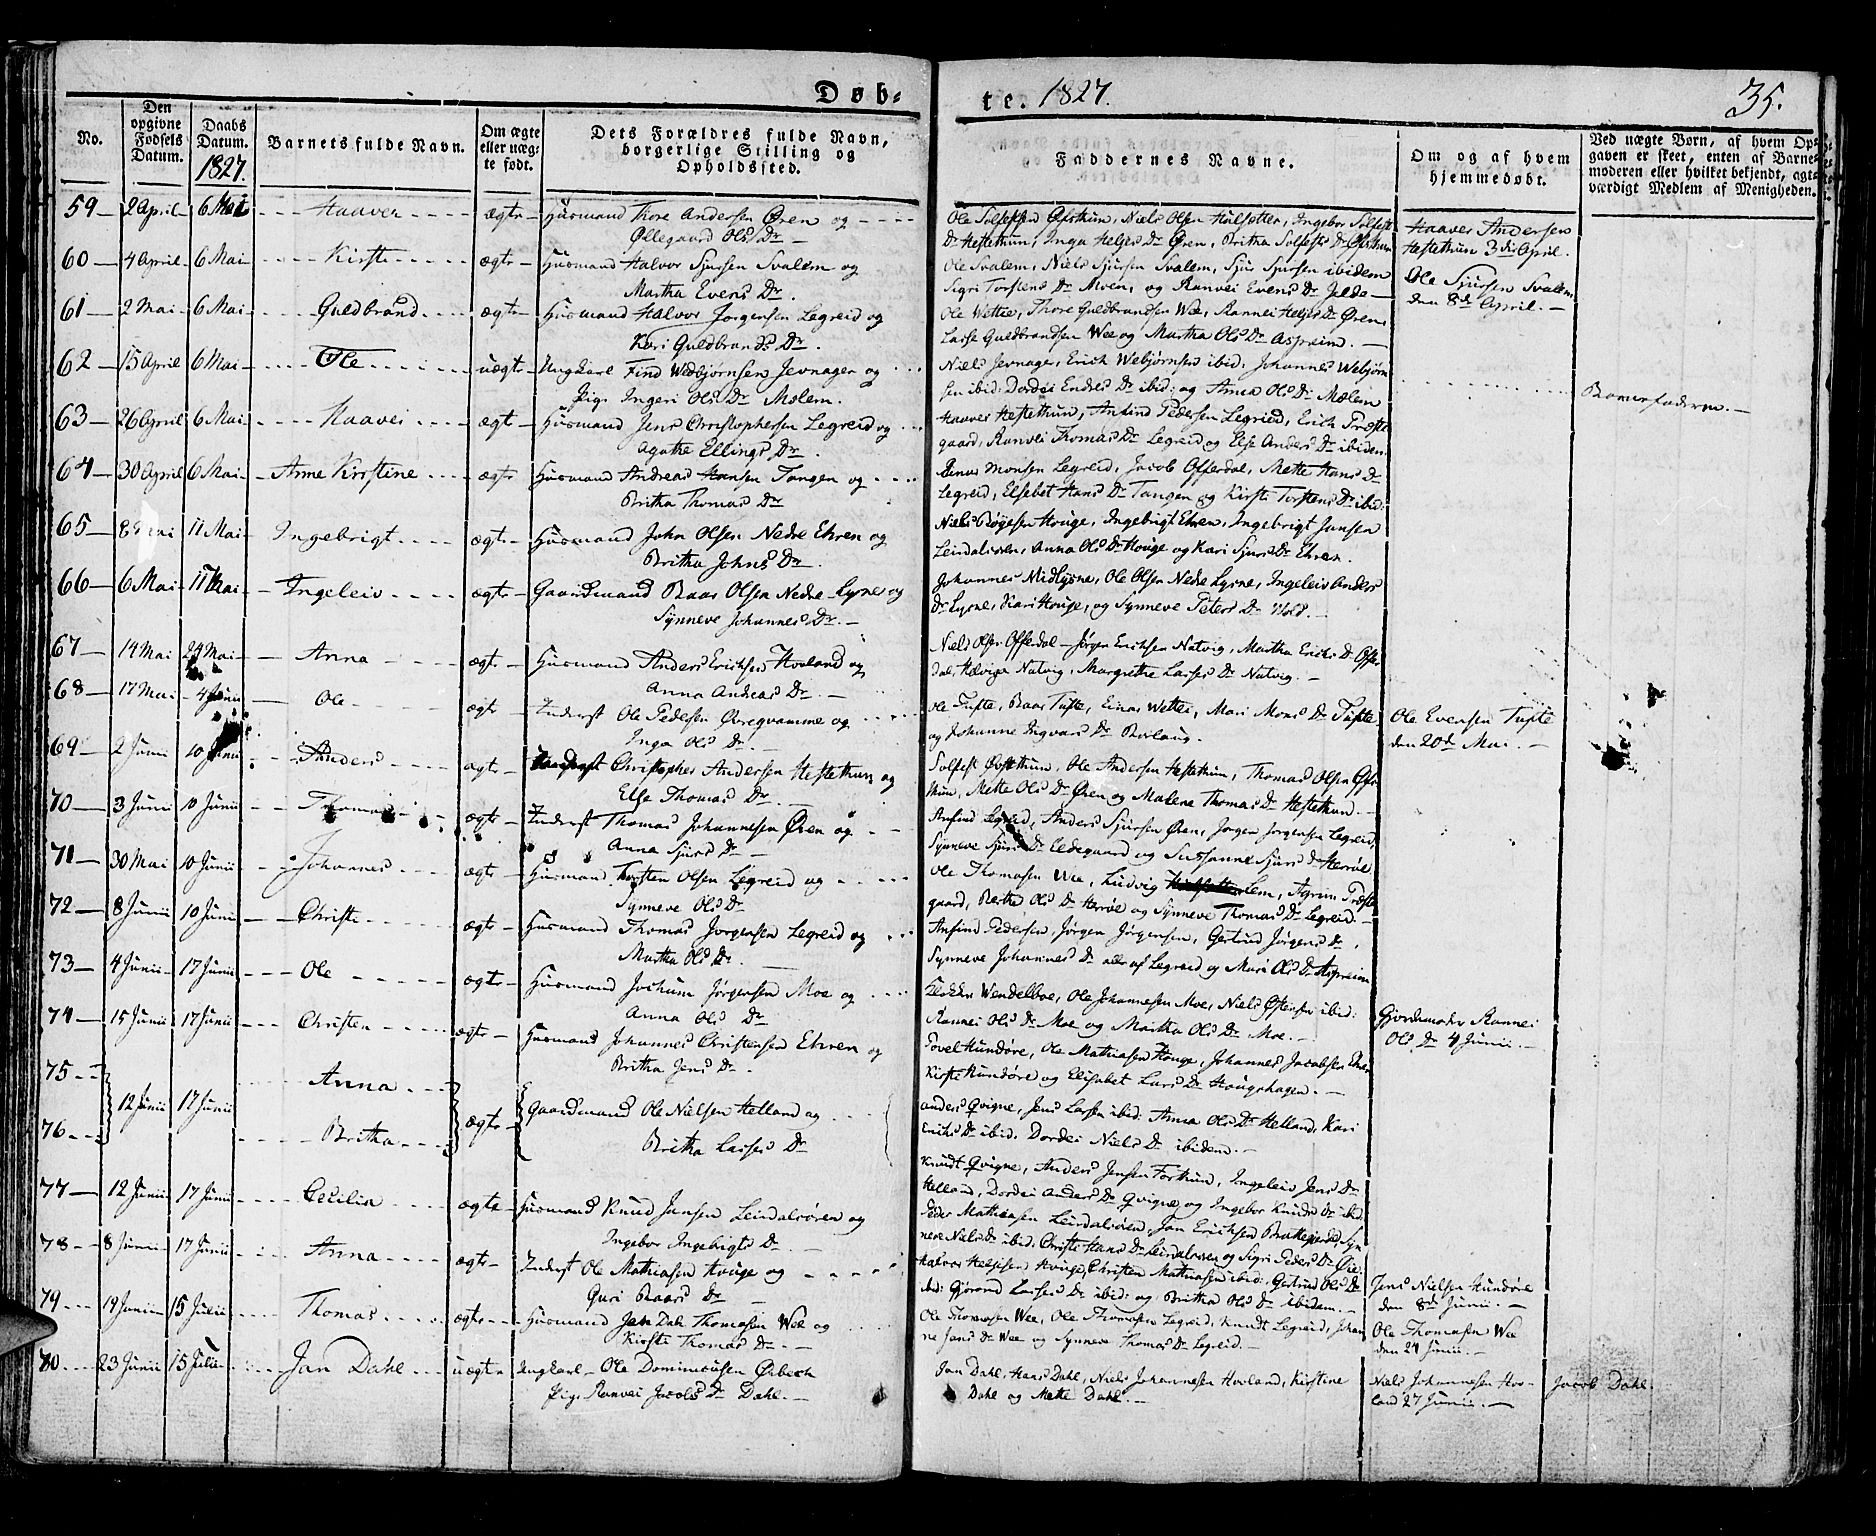 Døb-
te. 1827.
35.
No.
Den opgivne Fødsels Datum.
Daabs Datum. 1827.
Barnets fulde Navn.
Om ægte eller uægte født.
Dets Forældres fulde Navn, borgerlige Stilling og Opholdssted.
Faddernes Navne.
Om og af hvem hjemmedøbt.
Ved uægte Børn, af hvem Opgaven er skeet, enten af Barnemoderen eller hvilket bekjendt, agtværdigt Medlem af Menigheden.
59 2 April 6 Mai Haaver ægte Huusmand Thore Andersen Øren og
Øllegaard Ols Dr
Niels Olsen Hulsetter, Ingebor Solfests
Dr Hestethun, Inga Heljes Dr Øren, Britha Solfests Dr
Haaver Andersen
Hestethun 3die April.
60 4 April 6 Mai Kirsti ægte Huusmand Halvor Sjursen Svalem og
Martha Evens Dr.
Ole Svalem, Niels Sjursen Svalem, Sjur Sjursen ibidem
Sigri Torstens Dr Moen, og Ranvei Evens Dr Jelde
Ole Sjursen Svalem
den 8de April.
61 2 Mai 6 Mai Guldbrand ægte Huusmand Halvor Jørgensen Legreid og
Kari Guldbrands Dr.
Ole Wettie, Thore Guldbrandsen Wee, Rannei Heljes Dr Øren,
Lasse Guldbrandsen Wee og Martha Ols Dr Aspreim.
62 15 April 6 Mai Ole uægte Ungkarl Find Webjørnsen Jevnager og
Pig. Ingeri Ols Dr Mælem.
Niels Jevnager, Erich Webjørnsen ibid: Johannes Webjørn
sen ibid: Dordei Endres Dr ibid: og Anna Ols Dr Mælem
Barnefaderen.
63 26 April 6 Mai Haavei ægt Huusmand Jens Christophersen Legreid og
Agathe Ellings Dr.
Haaver Hestethun, Anfind Pedersen Legreid, Erich Præste
gaard, Ranvei Thomas Dr Legreid og Else Anders Dr ibidem.
64 30 April 6 Mai Anne Kirstine ægte Huusmand Andreas Hansen Tangen og
Britha Thomas Dr
Monsen Legreid, Jacob Offerdal, Mette Hans Dr
Legreid, Elsebet Hans Dr Tangen og Kirsti Torstens Dr ibid:
65 8 Mai 11 Mai Ingebrigt ægte Huusmand John Olsen Nedre Ehren og
Britha Johns Dr.
Niels Bøyesen Houge, Ingebrigt Ehren, Ingebrigt Jansen
Leirdalsøren, Anna Ols Dr Houge og Kari Sjurs Dr Ehren.
66 6 Mai 11 Mai Ingeleiv ægte Gaardmand Baar Olsen Nedre Lysne og
Synneve Johannes Dr.
Johannes Midlysne, Ole Olsen Nedre Lysne, Ingeleiv Anders
Dr Lysne, Kari Houge, og Synneve Peters Dr Wold.
67 14 Mai 24 Mai Anna ægte Huusmand Anders Erichsen Hovland og
Anna Andreas Dr.
Niels Olsen Offerdal, Jørgen Erichsen Natvig, Martha Erichs Dr Offer
dal, Helviga Natvig, Margrethe Lasses Dr Natvig.
68 17 Mai 4 Junii Ole ægte Inderst Ole Pedersen Øvregvamme og
Inga Ols Dr.
Ole Tufte, Baar Tufte, Einar Wettei, Mari Mons Dr Tufte,
og Johanne Ingvars Dr Borlaug.
Ole Evensen Tufte
den 20de Mai.
69 2 Junii 10 Junii Anders ægte Christopher Andersen Hestethun og
Else Thomas Dr.
Solfest Øvstethun, Ole Andersen Hestethun, Thomas Olsen
thun, Mette Ols Dr Øren og Malene Thomas Dr Hestethun.
70 3 Junii 10 Junii Thomas ægte Inderst Thomas Johannesen Øren og
Anna Sjurs Dr
Anfind Legreid, Anders Sjursen Øren, Jørgen Jørgensen Legreid,
Synneve Sjurs Dr Eldegaard og Susanne Sjurs Dr Herrøe
71 30 Mai 10 Junii Johannes ægte Huusmand Torsten Olsen Legreid og
Synneve Ols Dr
Ole Thomasen Wee, Ludvig Lem, Præste
gaard, Britha Ols Dr Herrøe og Synneve Thomas Dr Legreid.
72 8 Junii 10 Junii Christi ægte Huusmand Thomas Jørgensen Legreid og
Martha Ols Dr.
Anfind Pedersen, Jørgen Jørgensen, Gertrud Jørgens Dr,
Synneve Johannes Dr alle af Legreid og Mari Ols Dr Aspreim
73 4 Junii 17 Junii Ole ægte Huusmand Jochum Jørgensen Moe og
Anna Ols Dr
Wendelboe, Ole Johannesen Moe, Niels Østensen ibid:
Rannei Ols Dr Moe og Martha Ols Dr Moe.
Gjordemoder Rannei
Ols Dr 4 Junii.
74 15 Junii 17 Junii Christen ægte Huusmand Johannes Christensen Ehren og
Britha Jens Dr.
Povel Hundøre, Ole Mathiasen Houge, Johannes Jacobsen Ehren
Kirsti Hundøre og Elisabet Lars Dr Hougshagen.
75 12 Junii 17 Junii Anna
76 Britha ægte Gaardmand Ole Nielsen Helland og
Britha Lasses Dr
Anders Qvigne, Jens Larsen ibid. Anna Ols Dr Helland, Kari
Erichs Dr ibid. Dordei Niels Dr ibidem.
77 12 Junii 17 Junii Cecilia ægte Huusmand Knud Jansen Leirdalsøren og
Ingebor Ingebrigts Dr.
Knudt Qvigne, Anders Jensen Forthun, Ingeleiv Jens Dr
Helland, Dordei Anders Dr Qvigne og Ingebor Knuds Dr ibid.
78 8 Junii 17 Junii Anna ægte Inderst Ole Mathiasen Houge og
Guri Baars Dr
Peder Mathiasen Leirdalsøren, Jan Erichsen Syn
neve Niels Dr ibid. Christi Hans Dr Leirdalsøren og Sigri Peders Dr Øie.
Halvor Heljesen Houge, Christen Mathiasen ibid: Gertrud Ols Dr
ibid: Gjørond Lasses Dr ibid: og Britha Ols Dr ibidem.
Jens Nielsen Hundøre
den 8de Junii.
79 19 Junii 15 Julii Thomas ægte Huusmand Jan Dahl Thomasen Wee og
Kirsti Thomas Dr.
Ole Thomasen Wee, Ole Thomasen Legreid, Knudt Legreid, Johan
ne Jans Dr Wee og Synneve Thomas Dr Legreid.
Ole Thomasen Wee
den 24 Junii.
80 23 Junii 15 Julii Jan Dahl uægte Ungkarl Ole Dominicusen Ørbech
Pig. Ranvei Jacobs Dr Dahl.
Jan Dahl, Hans Dahl, Niels Johannesen Hovland, Kirstine
Dahl og Mette Dahl.
Niels Johannesen Hov-
land 27 Junii.
Jacob Dahl.